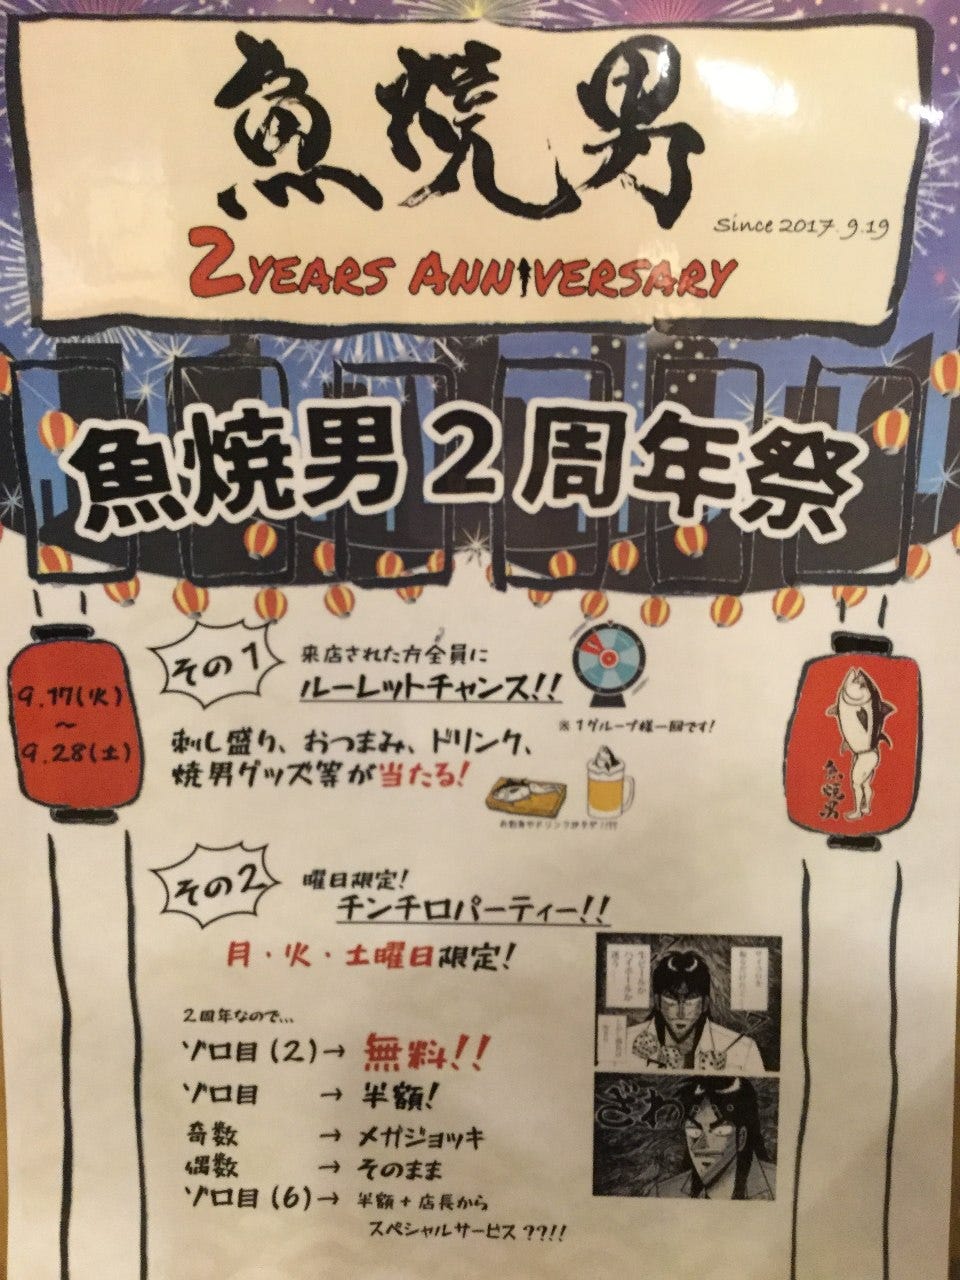 魚焼男
Since 2017.9.19
2YEARS ANNIVERSARY
魚焼男2周年祭
9.17(火)
～
9.28(土)
その1
来店された方全員に
ルーレットチャンス!!
※1グループ様一回です!
刺し盛り、おつまみ、ドリンク、
焼男グッズ等が当たる!
魚焼男
その2
曜日限定!
チンチロパーティー!!
月・火・土曜日限定!
2周年なので...
ゾロ目(2)→ 無料!!
ゾロ目 → 半額!
奇数 → メガジョッキ
偶数 → そのまま
ゾロ目(6)→ 半額+店長から
スペシャルサービス??!!
ざわ